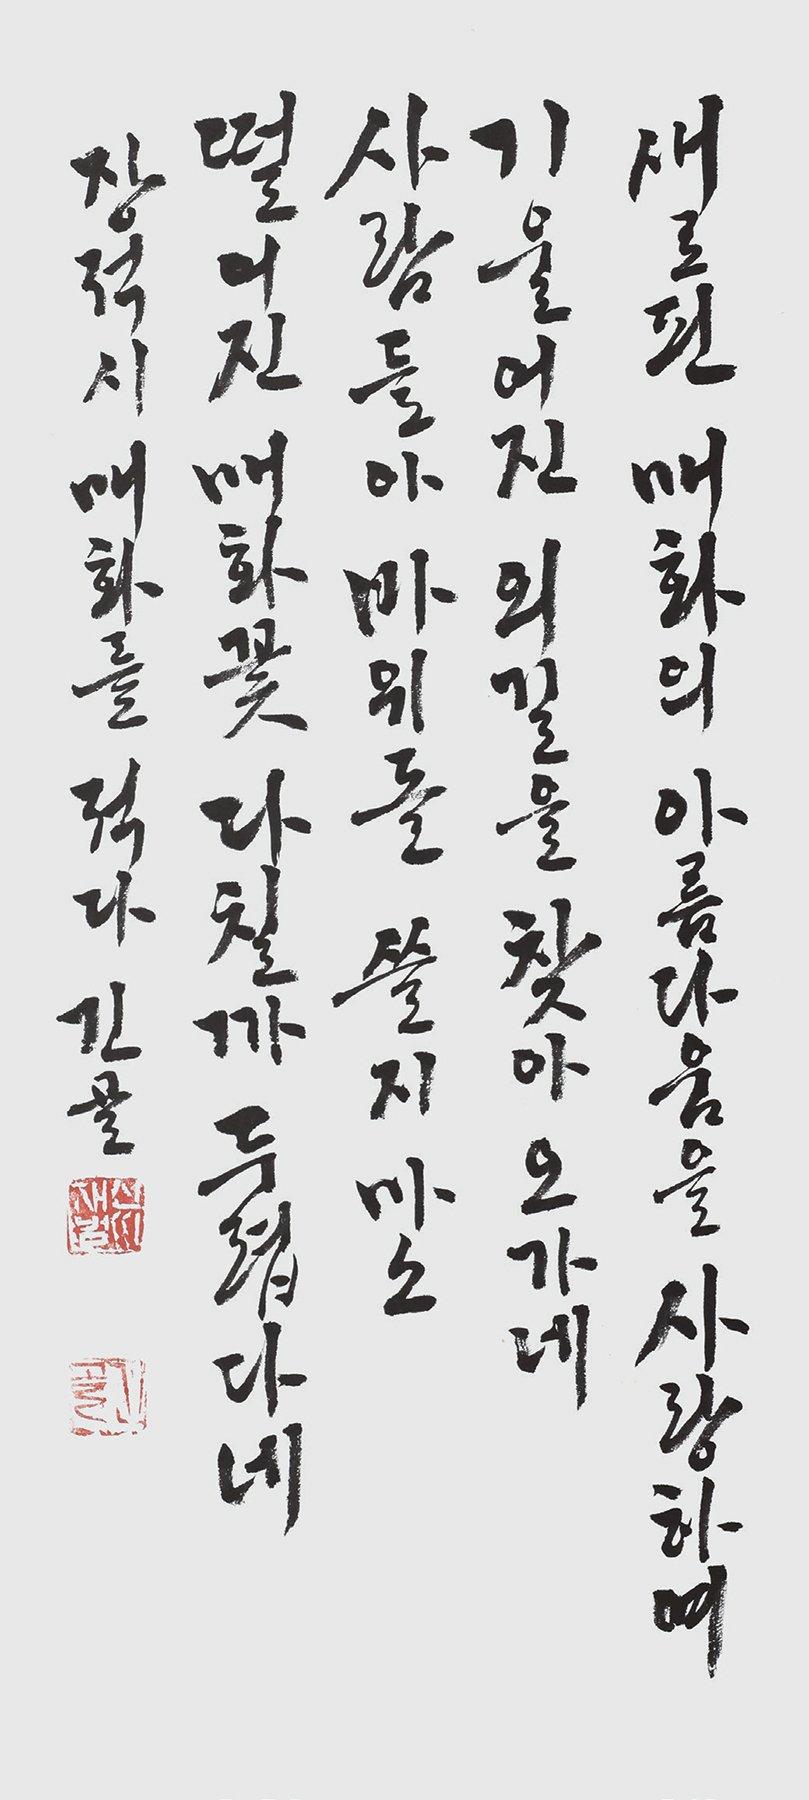 새로 핀 매화의 아름다움을 사랑하며
기울어진 외길을 찾아 오가네
사람들아 바위들 쓸지 마소
떨어진 매화꽃 다칠까 두렵다네
장적시 매화를 적다